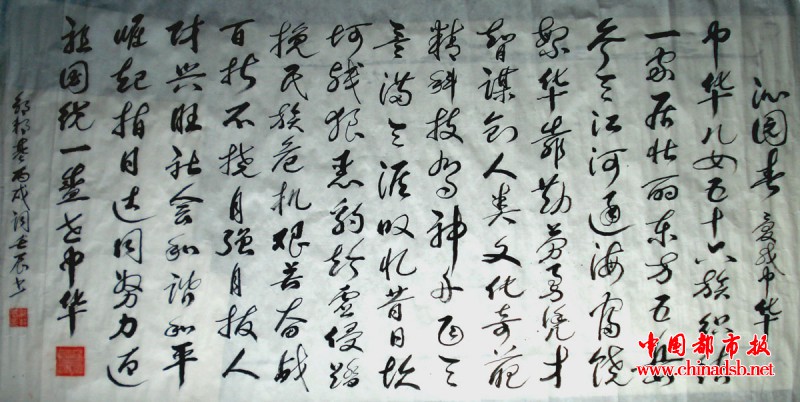 沁园春 爱我中华
中华儿女五十六族组结
一家居壮丽东方五岳
参天江河通海富饶
繁华靠勤劳勇凭才
智谋创人类文化奇葩
精科技驾神舟
满天涯 叹忆昔日坎
坷残狠患豹趁虚侵踏
挽民族危机艰苦奋战
百折不挠自强自拔人
财兴旺社会和谐和平
崛起指日达同努力迎
祖国统一盛世中华
丙戌词壬辰书
中国都市报
www.chinadsb.net